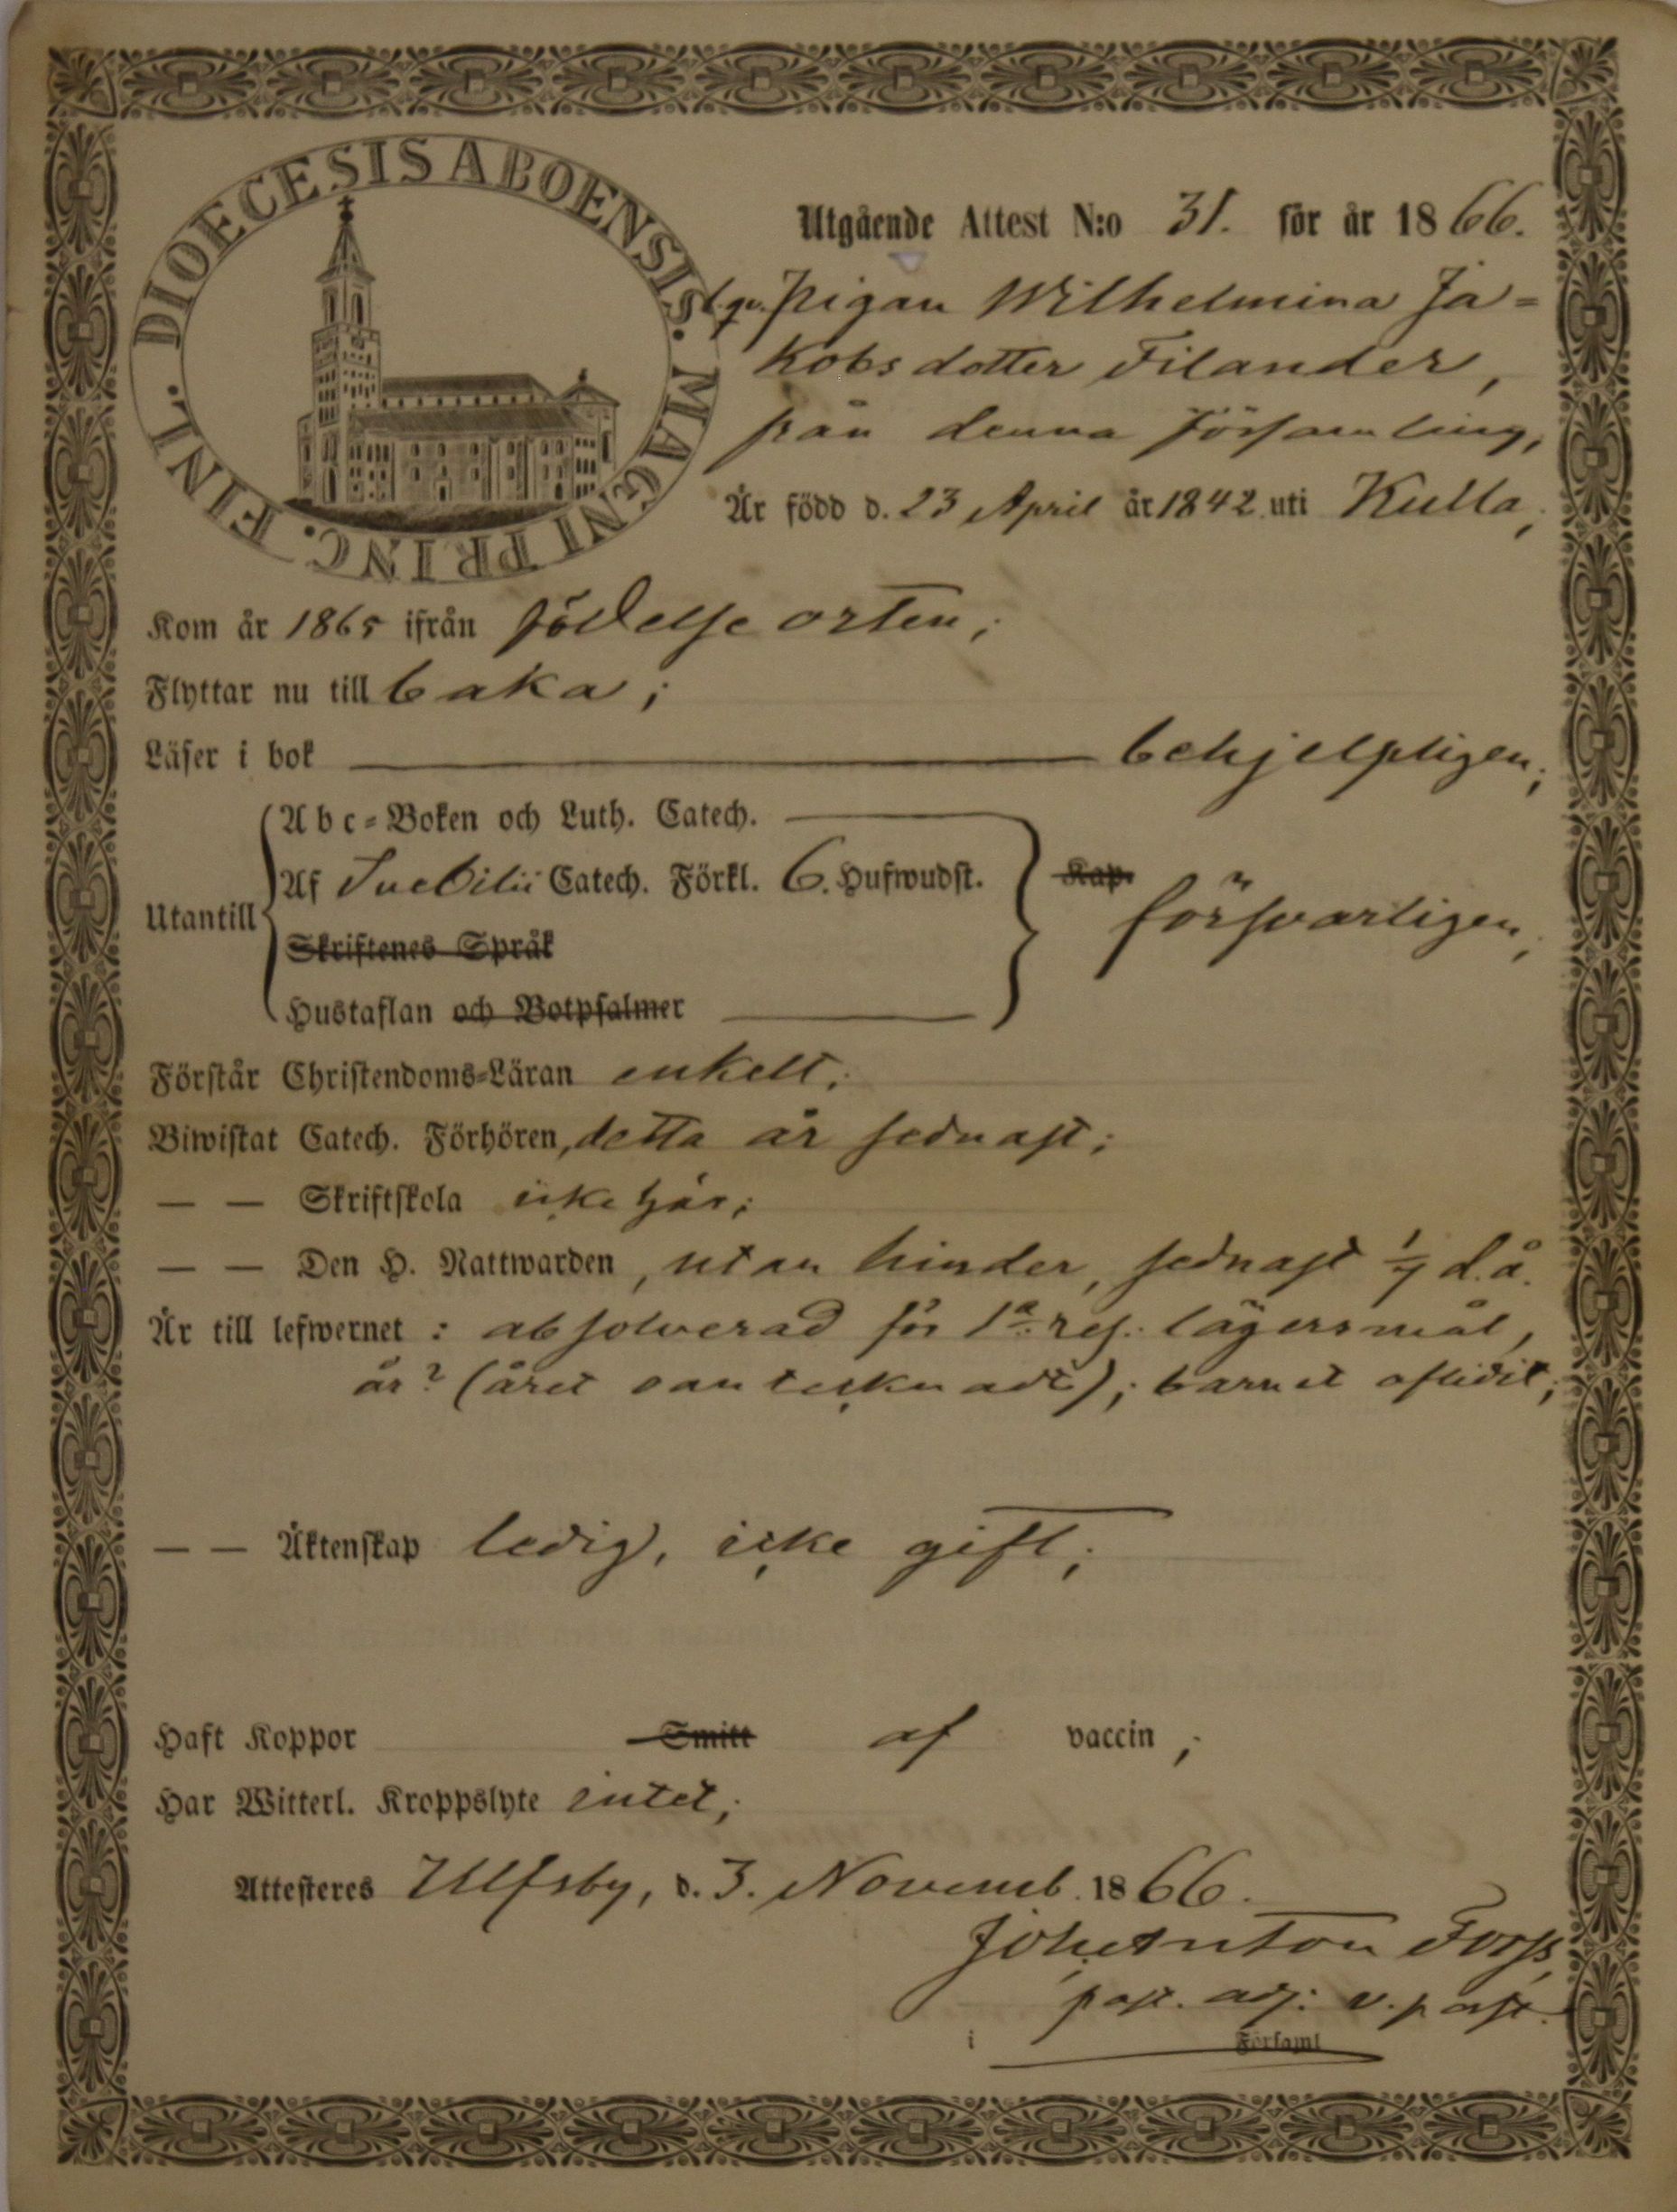 DIOECESIS ABOENSIS. MAGNI PRINC. FINL.
Utgående Attest N:o 31. för år 1866.
Pigan Wilhelmina Ja=
kobsdotter Filander,
från denna församling,
Är född d. 23 April år 1842 uti Kulla,
Kom år 1865 ifrån födelseorten;
Flyttar nu till baka;
Läser i bok behjelpligen;
Utantill
Abc=Boken och Luth. Catech.
Af Svebilii Catech. Förkl. 6. Hufwudst.
Kap.
försvarligen;
Skriftenes Språk
Hustaflan och Botpsalmer
Förstår Christendoms=Läran enkelt;
Biwistat Catech. Förhören, detta år sednast;
— — Skriftskola icke här;
— — Den H. Nattwarden, utan hinder, sednast 1/7 d.å.
Är till lefwernet : absolverad för 1a res. lägersmål,
år? (året oantecknadt); barnet aflidit;
— — Äktenskap ledig, icke gift;
Haft Koppor Smitt af vaccin;
Har Witterl. Kroppslyte intet;
Attesteres Ulfsby, d. 3. Novemb. 1866.
Joh. Anton Forss,
past. adj. v. past.
i Församl